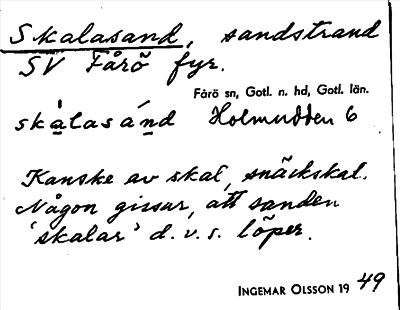 Skalasand, sandstrand
SV Fårö fyr.
Fårö sn, Gotl. n. hd, Gotl. län.
skàlasánd Holmudden 6
Kanske av skal, snäckskal.
Någon gissar, att sanden
'skalar' d.v.s. löper.
INGEMAR OLSSON 19 49